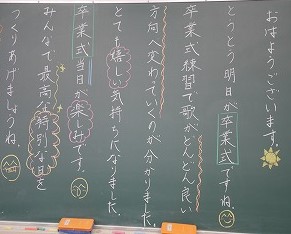 おはようございます。
とうとう明日が卒業式ですね。
卒業式練習で歌がどんどん良い
方向へ変わっていくのが分かりました。
とても嬉しい気持ちになりました。
卒業式当日が楽しみです。
みんなで最高な特別な日を
つくりあげましょうね。